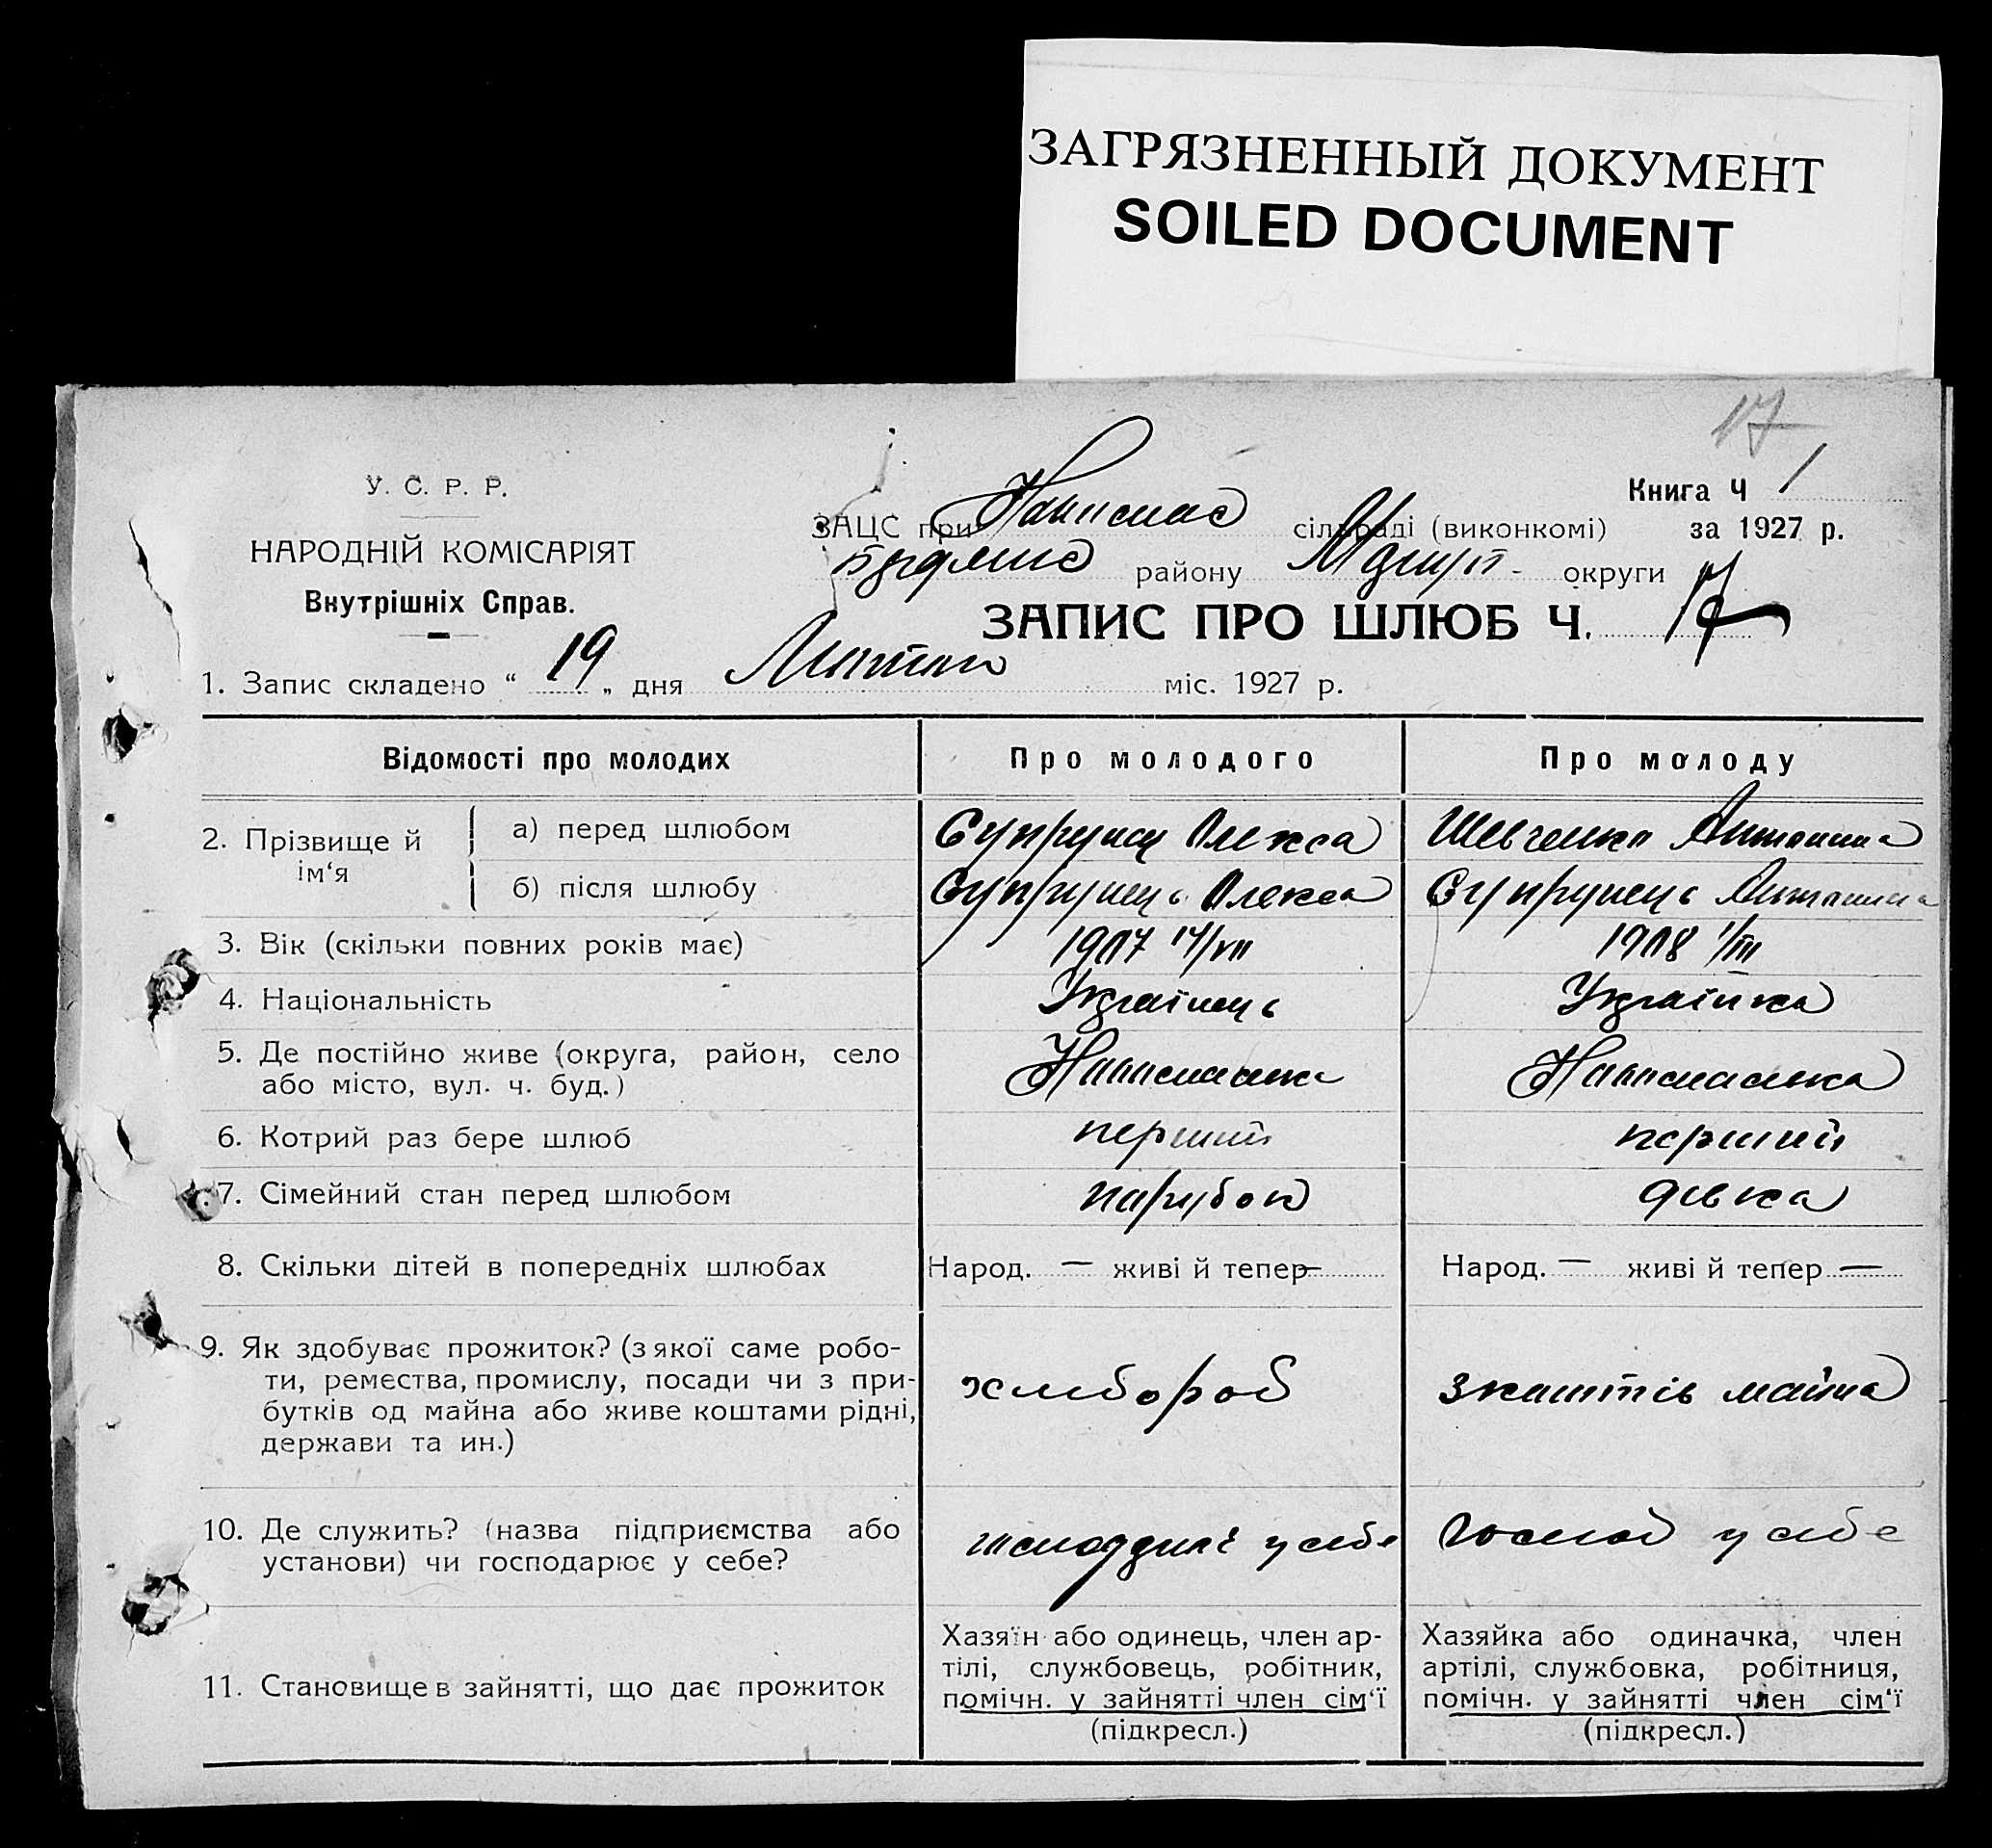 ЗАГРЯЗНЕННЫЙ ДОКУМЕНТ
SOILED DOCUMENT
17
У. С. Р. Р.
НАРОДНІЙ КОМІСАРІЯТ
Внутрішніх Справ.
Книга Ч 1
за 1927 р.
ЗАЦС при сільраді (виконкомі)
району округи
ЗАПИС ПРО ШЛЮБ Ч. 17
1. Запис складено “ 19 „ дня Лютого міс. 1927 р.
Відомості про молодих Про молодого Про молоду
2. Прізвище й ім‘я
а) перед шлюбом Супрунец Олекса Шевченко Антонина
б) після шлюбу Супрунець Олекса Супрунець Антонина
3. Вік (скільки повних років має) 1907 17/VII 1908 1/III
4. Національність Українець Українка
5. Де постійно живе (округа, район, село
або місто, вул. ч. буд.)
6. Котрий раз бере шлюб перший перший
7. Сімейний стан перед шлюбом парубок дівка
8. Скільки дітей в попередніх шлюбах Народ. — живі й тепер — Народ. — живі й тепер —
9. Як здобуває прожиток? (з якої саме робо-
ти, ремества, промислу, посади чи з при-
бутків од майна або живе коштами рідні,
держави та ин.)
хлибороб з каштів майна
10. Де служить? (назва підприємства або
установи) чи господарює у себе?
у себе у себе
11. Становище в зайнятті, що дає прожиток
Хазяїн або одинець, член ар-
тілі, службовець, робітник,
помічн. у зайнятті член сім‘ї
(підкресл.)
Хазяйка або одиначка, член
артілі, службовка, робітниця,
помічн. у зайнятті член сім‘ї
(підкресл.)